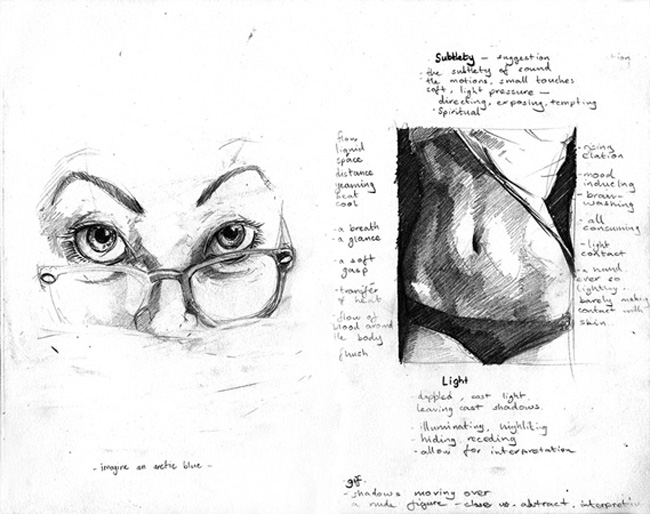 - imagine an arctic blue -
Subtleby - suggestion
- the subtlety of sound
the motions, small touches
soft, light pressure -
directing, exposing, tempting
· Spiritual
flow
liquid
space
distance
yearning
heat
cool
- a breath
- a glance
- a soft
gasp
- transfer
of heat
- flow of
blood around
the body
flush
- rising
elation
- mood
inducing
- brain-
washing
- all
consuming
- light
contact
- a hand
ever so
lightly
barely making
contact with
skin.
Light
- dappled, cast light.
leaving cast shadows.
- illuminating, highliting
- hiding, receding
- allow for interpretation
gif.
- shadows moving over
a nude figure - close up - abstract, interpretiv